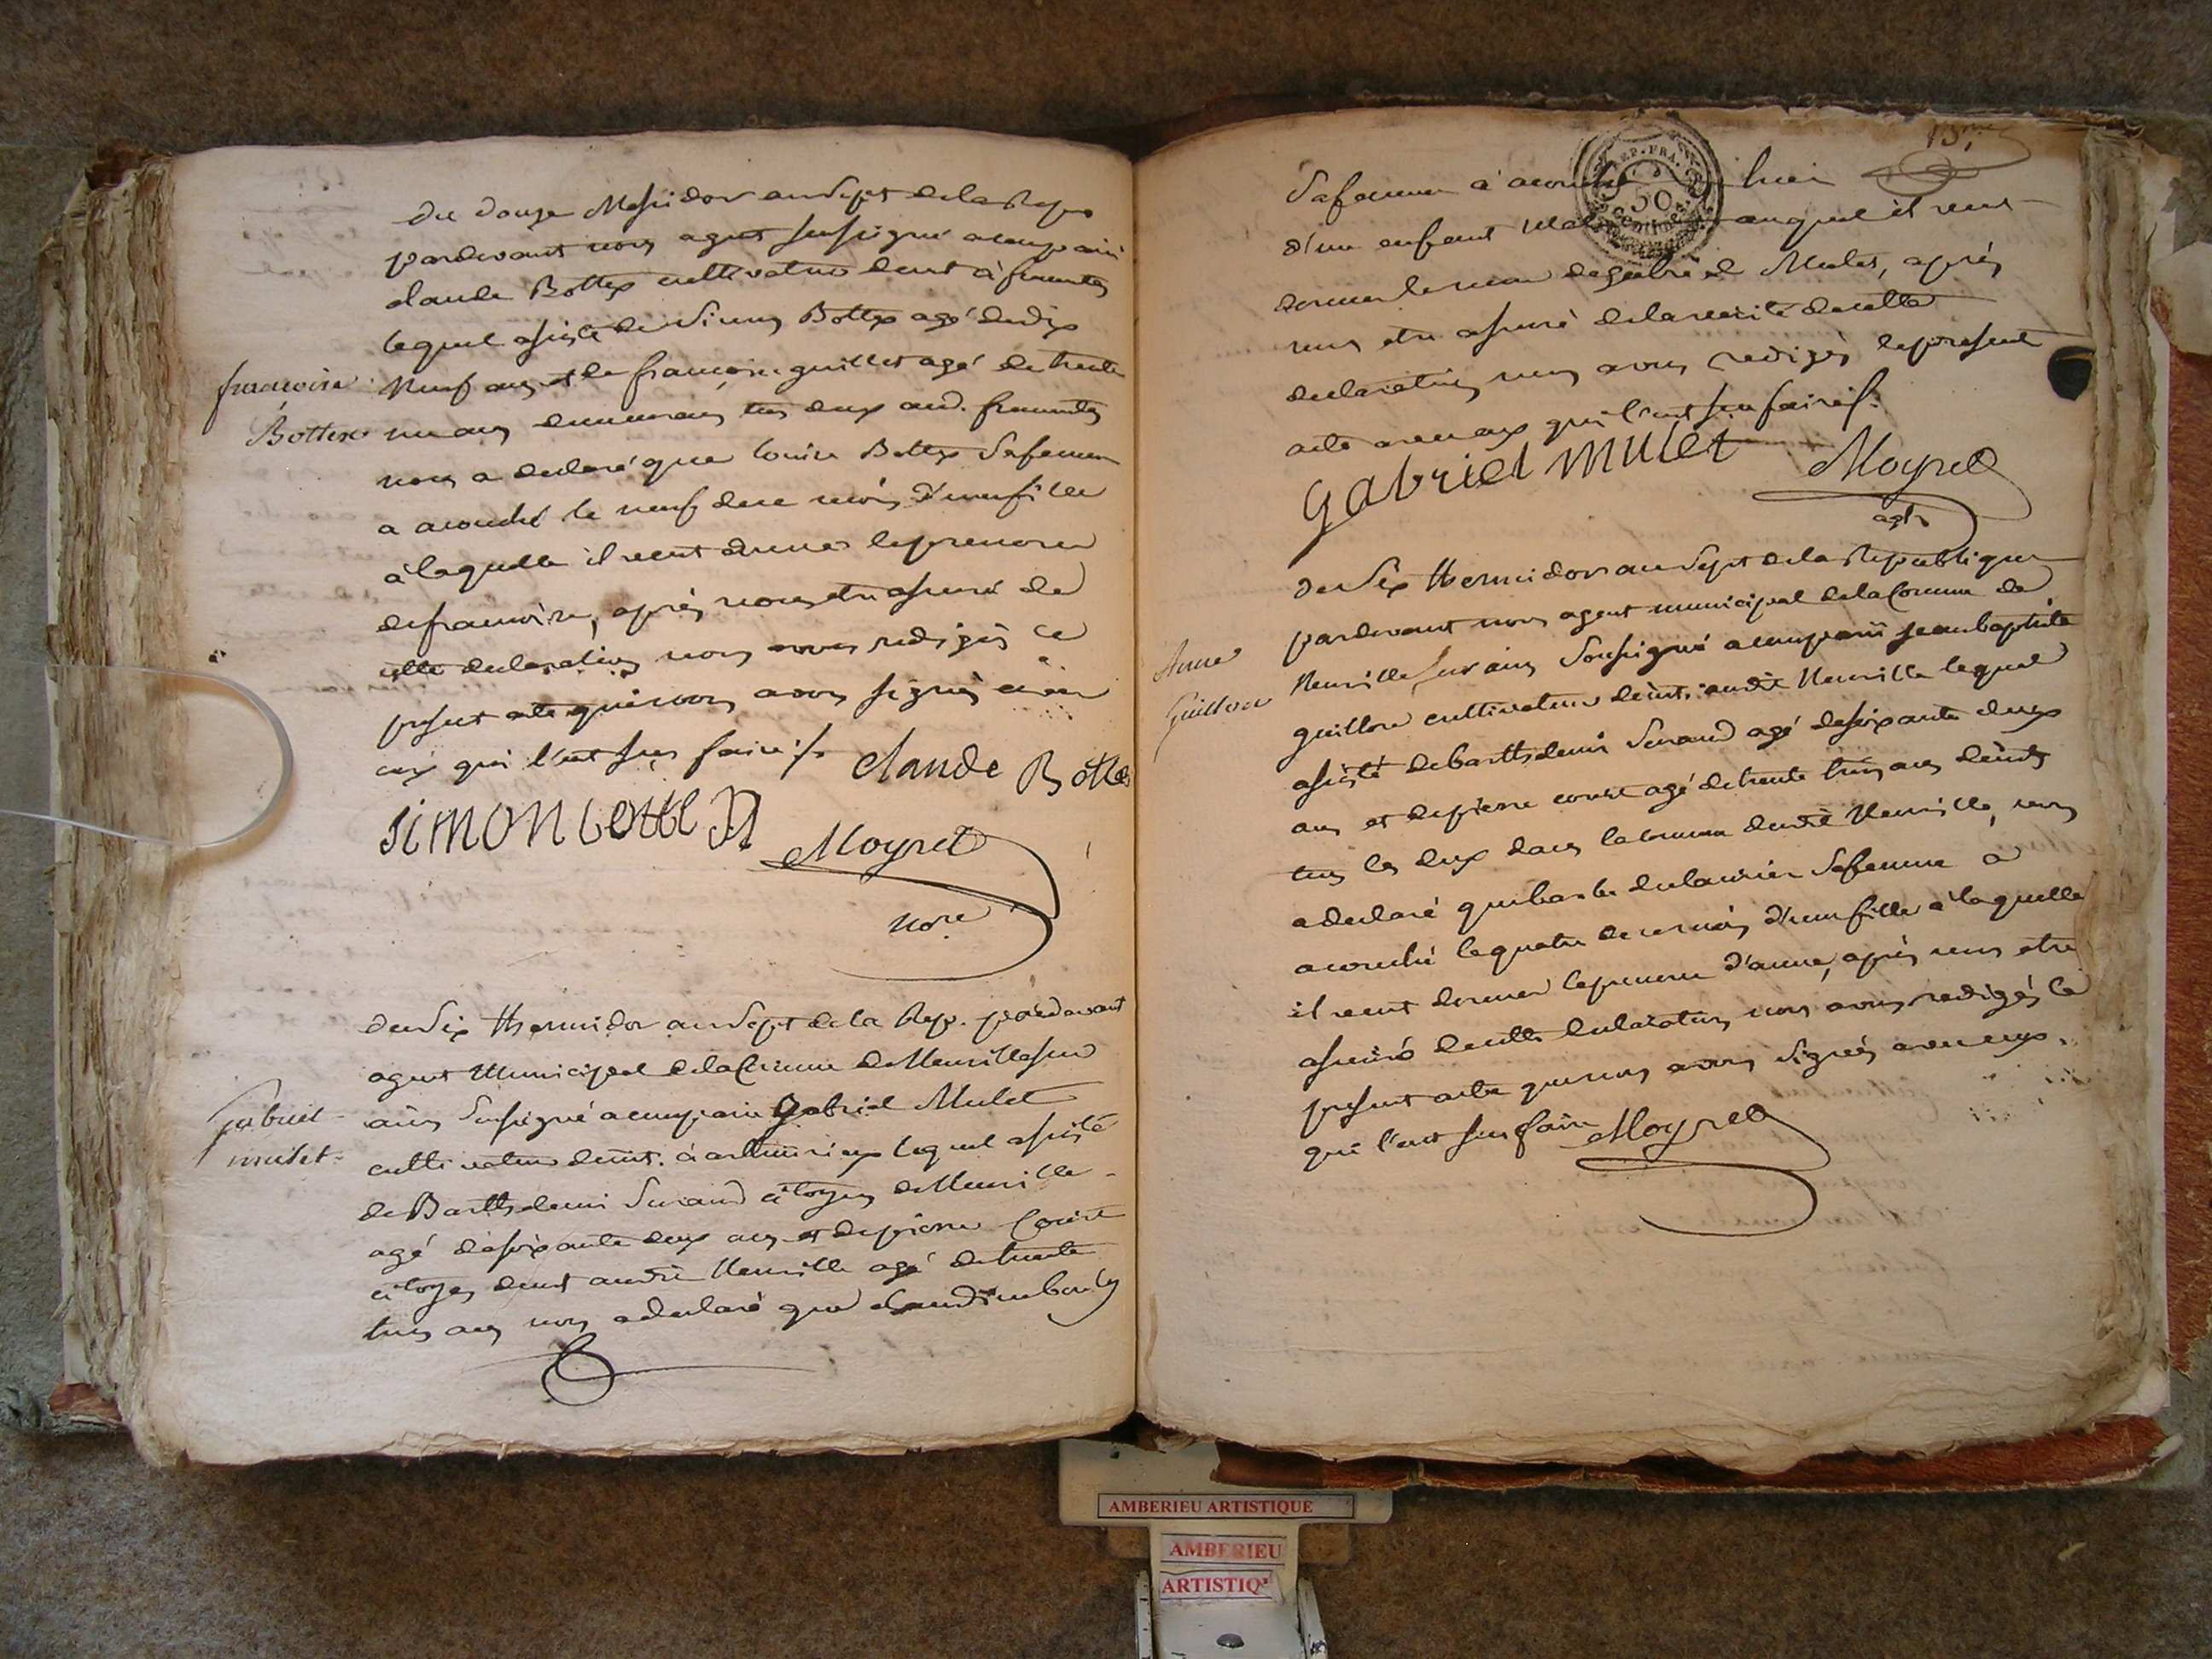 Du douze Messidor an Sept de la Rep
pardevant nous agent soussigné a comparu
claude Bottex cultivateur demt à
lequel assisté de Simon Bottex agé de dix
francoise neuf ans et de françoise guillet agé de trente
Bottex un ans demeurans tous deux aud.
nous a declaré que louise Bottex sa femme
a acouché le neuf de ce mois d'une fille
à laquelle il veut donner le prenom
de francoise, après nous etre assuré de
cette declaration nous avons redigés ce
present acte que nous avons signés avec
eux qui l'ont sçu faire ./.
claude Bottex
simon bottex
Moyret
nore
du Six thermidor an Sept de la Rep. pardevant
agent Municipal de la Comune de Neuville sur
gabriel ains Sousigné a comparu Gabriel Mulet
mulet cultivateur demt. à lequel assisté
de Barthelemi Durand citoyen de Neuville
agé de soixante deux ans et de pierre Convert
citoyen demt audit Neuville agé de trente
trois ans nous a declaré que claudine
13.
REP. FRA.
50
centimes
Sa femme à acouché hier
d'un enfant male auquel il veut
donner le nom de gabriel Mulet, après
nous etre assuré de la verité de cette
declaration nous avons redigés le present
acte avec eux qui l'ont sçu faire ./.
gabriel mulet
Moyret
agt
du Six thermidor an Sept de la Republique
pardevant nous agent municipal de la Comune de
Anne Neuville sur ains Sousigné a comparu jean baptiste
Guillon guillon cultivateur demt. audit Neuville lequel
assisté de barthelemi Durand agé de soixante deux
ans et de pierre convert agé de trente trois ans demts
tous les deux dans la comune dudit Neuville, nous
a declaré que barbe sa femme a
acouché le quatre de ce mois d'une fille à laquelle
il veut donner le prenom d'anne, après nous etre
assuré de cette declaration nous avons redigés le
present acte que nous avons signés avec eux
qui l'ont sçu faire
Moyret
AMBERIEU ARTISTIQUE
AMBERIEU
ARTISTIQ